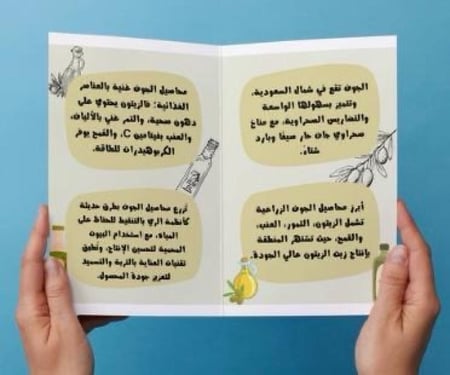 الجوف تقع في شمال السعودية،
وتتميز بسهولها الواسعة
والتضاريس الصحراوية، مع مناخ
صحراوي جاف حار صيفًا وبارد
شتاءً.
أبرز محاصيل الجوف الزراعية
تشمل الزيتون، التمور، العنب،
والقمح، حيث تشتهر المنطقة
بإنتاج زيت الزيتون عالي الجودة.
محاصيل الجوف غنية بالعناصر
الغذائية: فالزيتون يحتوي على
دهون صحية، والتمر غني بالألياف،
والعنب بفيتامين C، والقمح يوفر
الكربوهيدرات للطاقة.
تُزرع محاصيل الجوف بطرق حديثة
كأنظمة الري بالتنقيط للحفاظ على
المياه، مع استخدام البيوت
المحمية لتحسين الإنتاج، وتُطبق
تقنيات العناية بالتربة والتسميد
لتعزيز جودة المحصول.